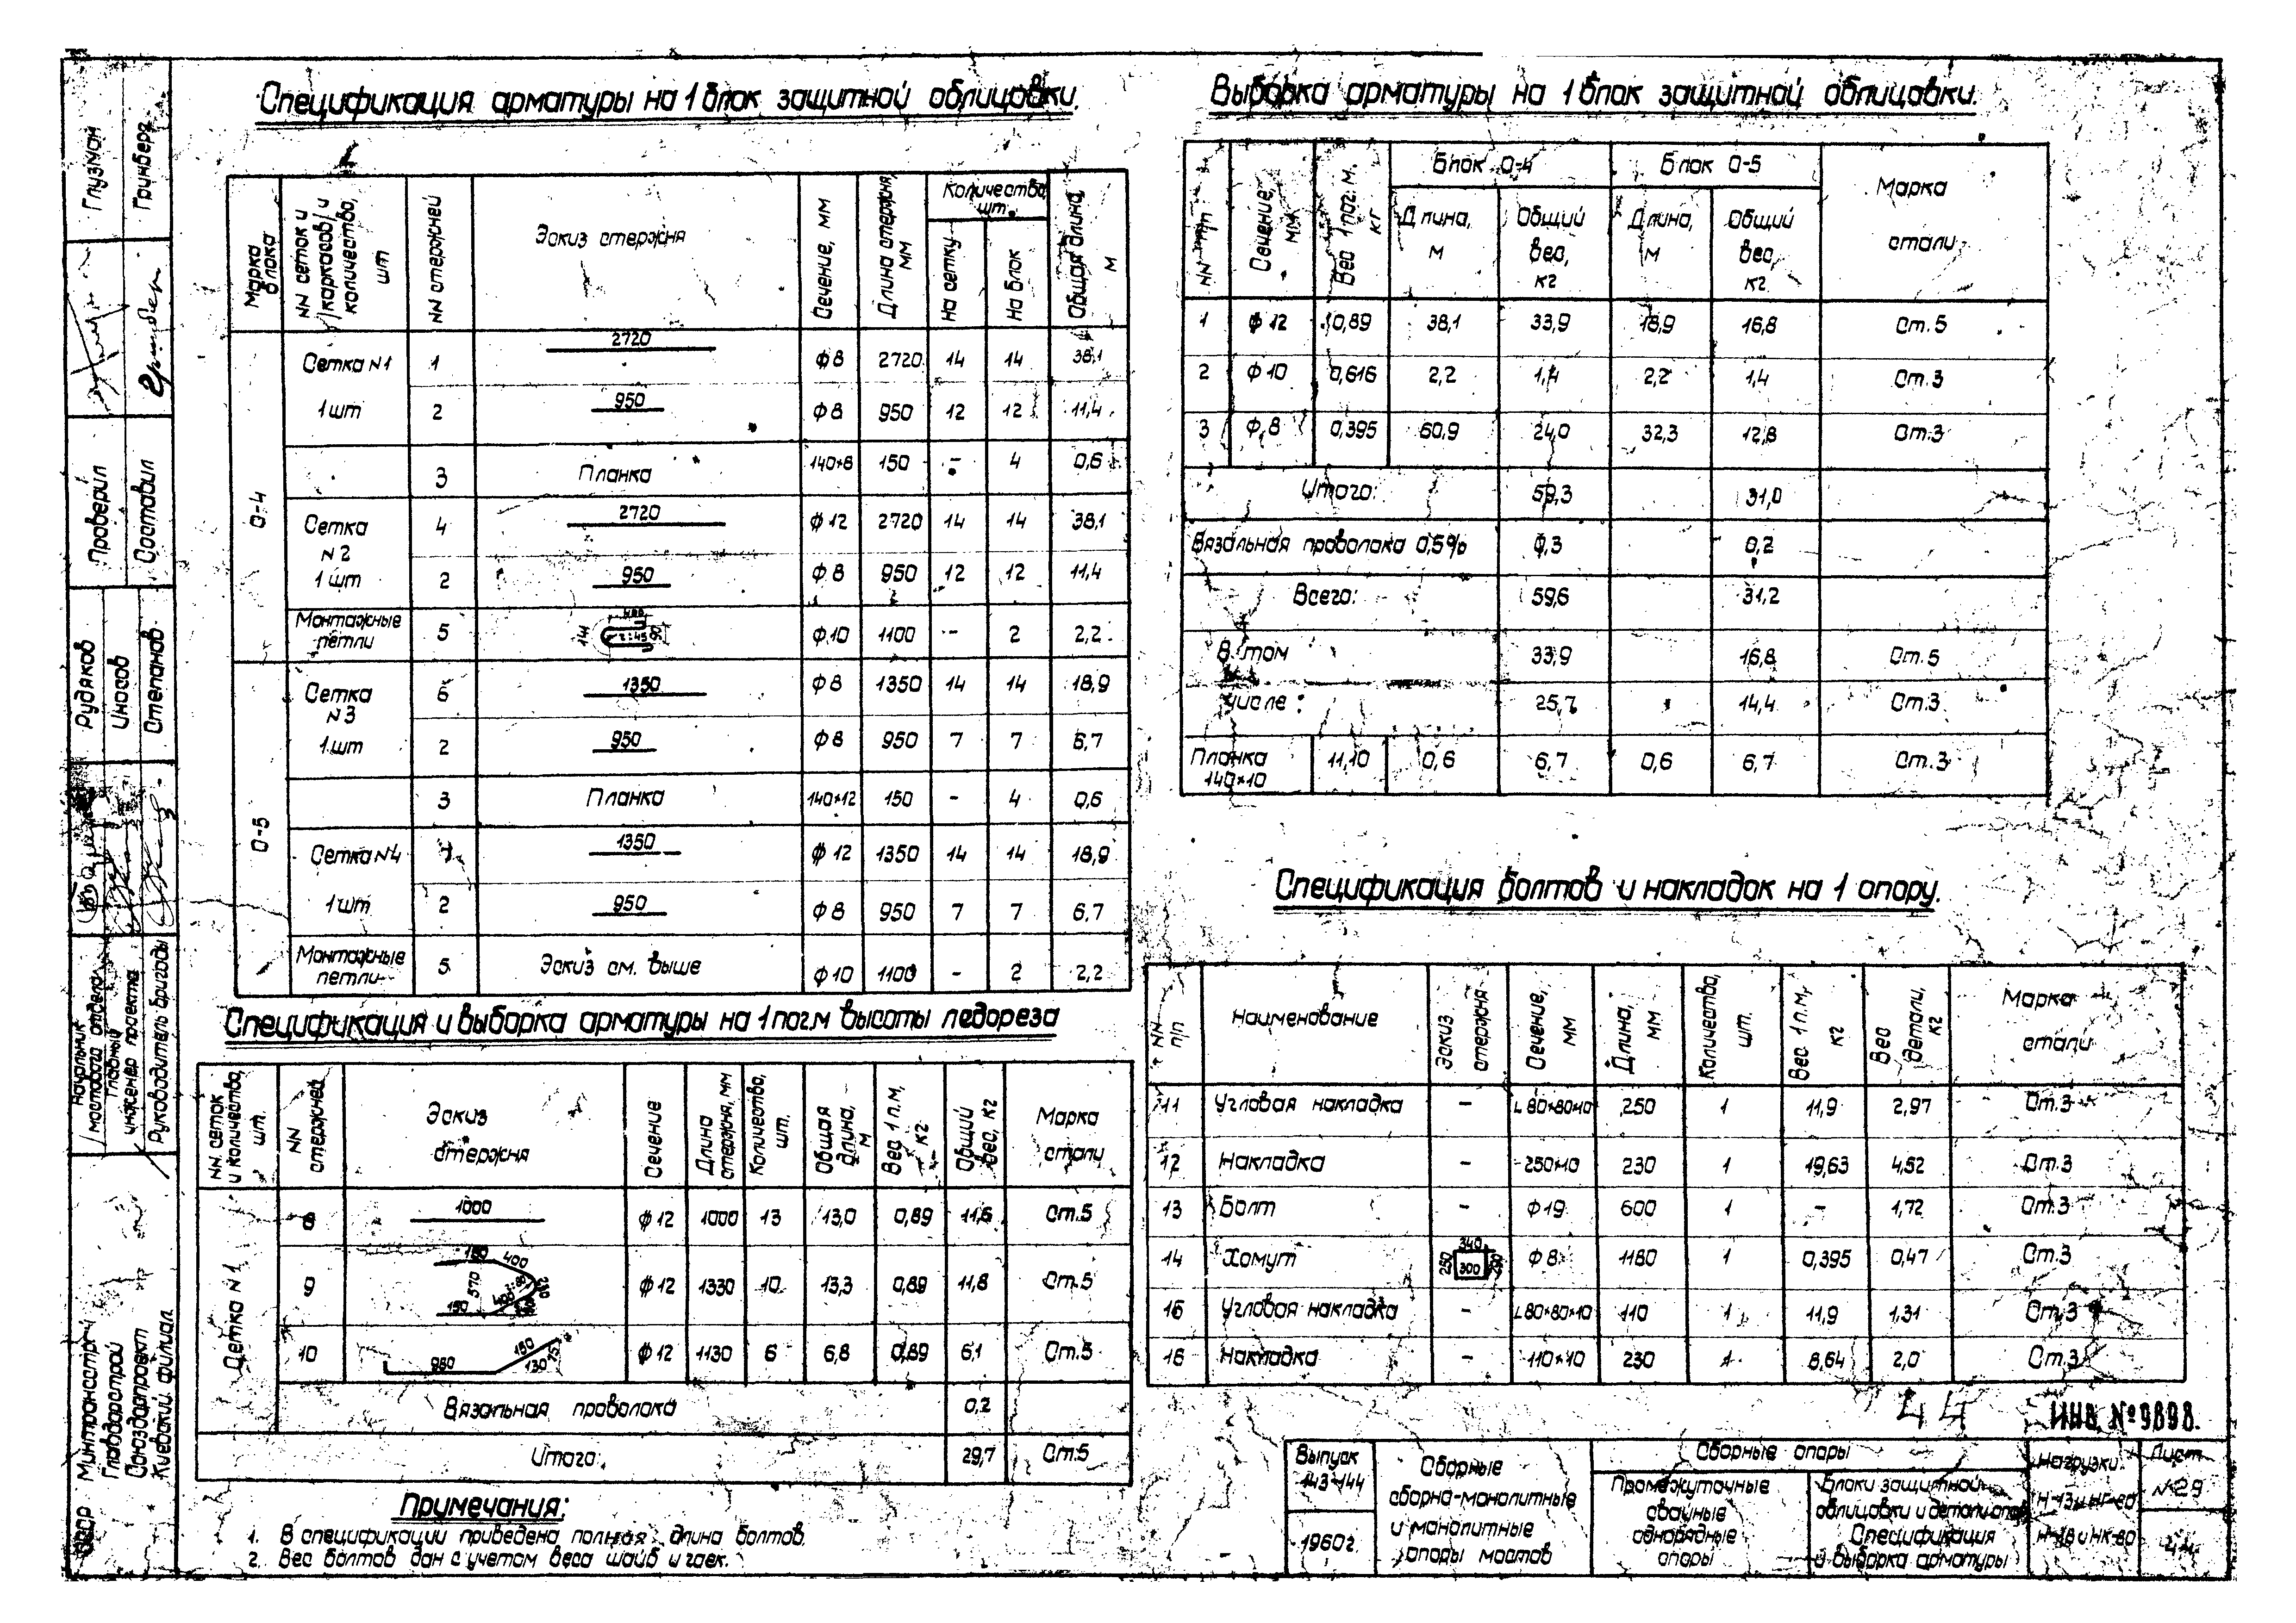 Спецификация арматуры на 1 блок защитной облицовки.
Марка блока
NN сеток и /каркасов/ и количество, шт
NN стержней
Эскиз стержня
Сечение, мм
Длина стержня, мм
Количество, шт.
На сетку
На блок
Общая длина, м
О-4
Сетка N1 1 2720 ф8 2720 14 14 38,1
1 шт 2 950 ф8 950 12 12 11,4
3 Планка 140×8 150 - 4 0,6
Сетка 4 2720 ф12 2720 14 14 38,1
N2
1 шт 2 950 ф8 950 12 12 11,4
Монтажные петли 5 ф10 1100 - 2 2,2
О-5
Сетка 6 1350 ф8 1350 14 14 18,9
N3
1 шт 2 950 ф8 950 7 7 6,7
3 Планка 140×12 150 - 4 0,6
Сетка N4 1350 ф12 1350 14 14 18,9
1 шт 2 950 ф8 950 7 7 6,7
Монтажные петли 5 Эскиз см. выше ф10 1100 - 2 2,2
Спецификация и выборка арматуры на 1 пог.м высоты ледореза
NN сеток и количество, шт.
NN стержней
Эскиз стержня
Сечение
Длина стержня, мм
Количество, шт.
Общая длина, м
Вес 1 п.м, кг
Общий вес, кг
Марка стали
Сетка N1
8 1000 ф12 1000 13 13,0 0,89 11,6 Ст.5
9 400 570 150 ф12 1330 10 13,3 0,89 11,8 Ст.5
10 980 150 130 ф12 1130 6 6,8 0,89 6,1 Ст.5
Вязальная проволока 0,2
Итого: 29,7 Ст.5
Примечания:
1. В спецификации приведена полная длина болтов.
2. Вес болтов дан с учетом веса шайб и гаек.
Выборка арматуры на 1 блок защитной облицовки.
NN п/п
Сечение, мм
Вес 1 пог. м. кг
Блок О-4
Блок О-5
Длина, м
Общий вес, кг
Длина, м
Общий вес, кг
Марка стали
1 ф12 0,89 38,1 33,9 18,9 16,8 Ст.5
2 ф10 0,616 2,2 1,4 2,2 1,4 Ст.3
3 ф8 0,395 60,9 24,0 32,3 12,8 Ст.3
Итого: 59,3 31,0
Вязальная проволока 0,5% 0,3 0,2
Всего: 59,6 31,2
В том 33,9 16,8 Ст.5
числе: 25,7 14,4 Ст.3
Планка 140×10 11,10 0,6 6,7 0,6 6,7 Ст.3
Спецификация болтов и накладок на 1 опору.
NN п/п
Наименование
Эскиз стержня
Сечение, мм
Длина, мм
Количество, шт.
Вес 1 п.м, кг
Вес детали, кг
Марка стали
11 Угловая накладка - L 80×80×10 250 1 11,9 2,97 Ст.3
12 Накладка - -250×10 230 1 19,63 4,52 Ст.3
13 Болт - ф19 600 1 - 1,72 Ст.3
14 Хомут 340 250 300 ф8 1180 1 0,395 0,47 Ст.3
16 Угловая накладка - L 80×80×10 110 1 11,9 1,31 Ст.3
16 Накладка - -110×10 230 1 8,64 2,0 Ст.3
44
ИНВ №9898.
Выпуск 143-144
1960г.
Сборные сборно-монолитные и монолитные опоры мостов
Сборные опоры
Промежуточные свайные однорядные опоры
Блоки защитной облицовки и детали опор Спецификация и выборка арматуры
Нагрузки:
Н-13 и НГ-60
Н-18 и НК-80
Лист
N29
44
Глузман
Гринберг
Проверил
Составил
Рудяков
Иносов
Степанов
Начальник мостового отдела
Главный инженер проекта
Руководитель бригады
СССР Минтрансстрой
Главдорстрой
Союздорпроект
Киевский филиал